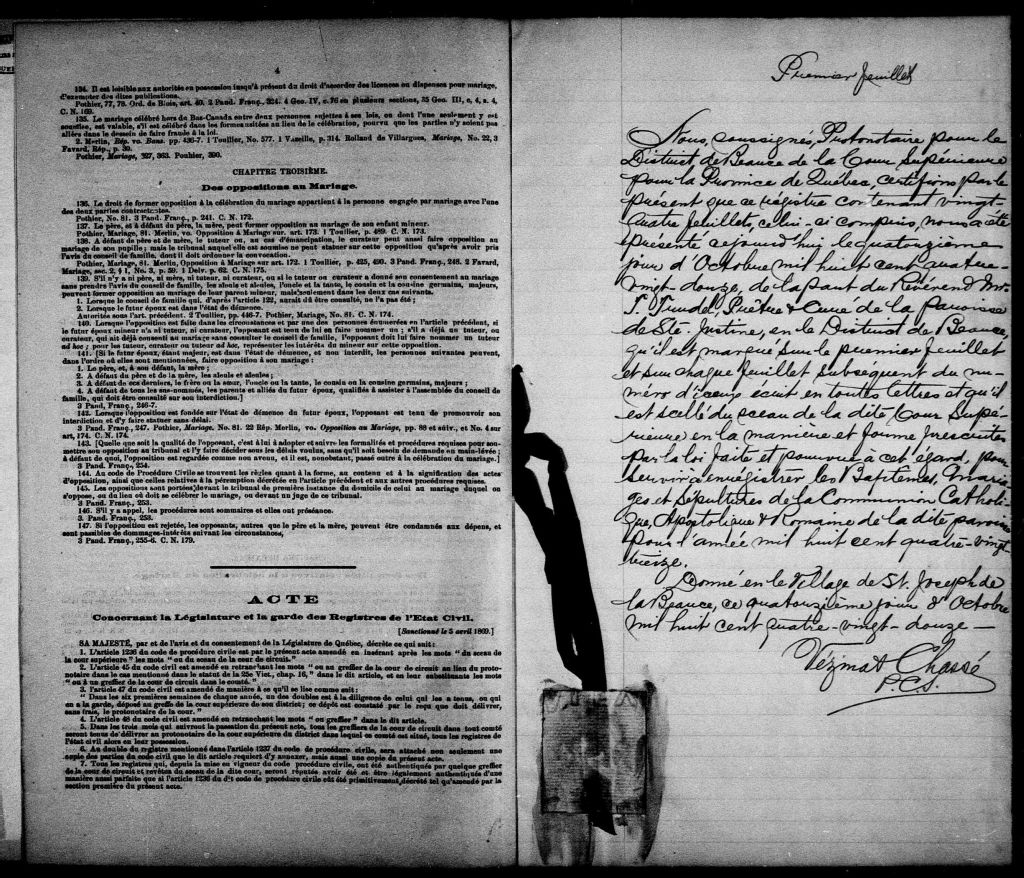 4
134. Il est loisible aux autorités en possession jusqu'à présent du droit d'accorder des licences ou dispenses pour mariage,
d'exempter des dites publications.
Pothier, 77, 78. Ord. de Blois, art. 40. 2 Pand. Franç., 324. 4 Geo. IV, c. 76 en plusieurs sections, 35 Geo. III, c. 4, s. 4,
C. N. 169.
135. Le mariage célébré hors du Bas-Canada entre deux personnes sujettes à ses lois, ou dont l'une seulement y est
soumise, est valable, s'il est célébré dans les formes usitées au lieu de la célébration, pourvu que les parties n'y soient pas
allées dans le dessein de faire fraude à la loi.
2. Merlin, Rép. vo. Bans. pp. 436-7. 1 Touiller, No. 577. 1 Vazeille, p. 314. Rolland de Villargues, Mariage, No. 22, 3
Favard, Rép., p. 39.
Pothier, Mariage, 327, 363. Pouhier, 390.
CHAPITRE TROISIÈME.
Des oppositions au Mariage.
136. Le droit de former opposition à la célébration du mariage appartient à la personne engagée par mariage avec l'une
des deux parties contractantes.
Pothier, No. 81. 3 Pand. Franç., p. 241. C. N. 172.
137. Le père, et à défaut du père, la mère, peut former opposition au mariage de son enfant mineur.
Pothier, Mariage, 81. Merlin, vo. Opposition à Mariage sur. art. 173. 1 Toullier, p. 489. C. N. 173.
138. A défaut de père et de mère, le tuteur ou, au cas d'émancipation, le curateur peut aussi faire opposition au
mariage de son pupille; mais le tribunal auquel elle est soumise ne peut statuer sur cette opposition qu'après avoir pris
l'avis du conseil de famille, dont il doit ordonner la convocation.
Pothier, Mariage, 81. Merlin, Opposition à Mariage sur art. 172. 1 Toullier, p. 425, 490. 3 Pand. Franç., 248. 2 Favard,
Mariage, sec. 2, § 1, No. 3, p. 59. 1 Delv. p. 62. C. N. 175.
139. S'il n'y a ni père, ni mère, ni tuteur, ni curateur, ou si le tuteur ou curateur a donné son consentement au mariage
sans prendre l'avis du conseil de famille, les aïeuls et aïeules, l'oncle et la tante, le cousin et la cousine germains, majeurs,
peuvent former opposition au mariage de leur parent mineur, mais seulement dans les deux cas suivants.
1. Lorsque le conseil de famille qui, d'après l'article 122, aurait dû être consulté, ne l'a pas été;
2. Lorsque le futur époux est dans l'état de démence.
Autorités sous l'art. précédent. 2 Toullier, pp. 446-7. Pothier, Mariage, No. 81. C. N. 174.
140. Lorsque l'opposition est faite dans ces circonstances et par une des personnes énumérées en l'article précédent, si
le futur époux mineur n'a ni tuteur, ni curateur, l'opposant est tenu de lui en faire nommer un; s'il a déjà un tuteur, ou
curateur, qui ait déjà consenti au mariage sans consulter le conseil de famille, l'opposant doit lui faire nommer un tuteur
ad hoc; pour les tuteur, curateur ou tuteur ad hoc, représenter les intérêts du mineur sur cette opposition.
141. [Si le futur époux, étant majeur, est dans l'état de démence, et non interdit, les personnes suivantes peuvent,
dans l'ordre où elles sont mentionnées, faire opposition à son mariage:
1. Le père, et, à son défaut, la mère;
2. A défaut du père et de la mère, les aïeuls et aïeules;
3. A défaut de ces derniers, le frère ou la sœur, l'oncle ou la tante, le cousin ou la cousine germains, majeurs;
4. A défaut de tous les sus-nommés, les parents et alliés du futur époux, qualifiés à assister à l'assemblée du conseil de
famille, qui doit être consulté sur son interdiction.]
3 Pand. Franç., 246-7.
142. Lorsque l'opposition est fondée sur l'état de démence du futur époux, l'opposant est tenu de promouvoir son
interdiction et d'y faire statuer sans délai.
3 Pand. Franç., 247. Pothier, Mariage, No. 81. 22 Rép. Merlin, vo. Opposition au Mariage, pp. 88 et suiv., et No. 4 sur
art, 174. C. N. 174.
143. [Quelle que soit la qualité de l'opposant, c'est à lui à adopter et suivre les formalités et procédures requises pour sou-
mettre son opposition au tribunal et l'y faire décider sous les délais voulus, sans qu'il soit besoin de demande en main-levée;
à défaut de quoi, l'opposition est regardée comme non avenue, et il est, nonobstant, passé outre à la célébration du mariage.]
3 Pand. Franç., 254.
144. Au code de Procédure Civile se trouvent les règles quant à la forme, au contenu et à la signification des actes
d'opposition, ainsi que celles relatives à la péremption décrétée en l'article précédent et aux autres procédures requises.
145. Les oppositions sont portées devant le tribunal de première instance du domicile de celui au mariage duquel on
s'oppose, ou du lieu où doit se célébrer le mariage, ou devant un juge de ce tribunal.
3 Pand. Franç., 253.
146. S'il y a appel, les procédures sont sommaires et elles ont préséance.
3. Pand. Franç., 253.
147. Si l'opposition est rejetée, les opposants, autres que le père et la mère, peuvent être condamnés aux dépens, et
sont passibles de dommages-intérêts suivant les circonstances,
3 Pand. Franç., 255-6. C. N. 179.
ACTE
Concernant la Législature et la garde des Registres de l'Etat Civil.
[Sanctionné le 5 avril 1869.]
SA MAJESTÉ, par et de l'avis et du consentement de la Législature de Québec, décrète ce qui suit:
1. L'article 1236 du code de procédure civile est par le présent acte amendé en insérant après les mots "du sceau de
la cour supérieure" les mots "ou du sceau de la cour de circuit."
2. L'article 45 du code civil est amendé en retranchant les mots "ou au greffier de la cour de circuit au lieu du proto-
notaire dans le cas mentionné dans le statut de la 25e Vict., chap. 16," dans le dit article, et en leur substituant les mots
"ou à un greffier de la cour de circuit dans le comté."
3. l'article 47 du code civil est amendé de manière à ce qu'il se lise comme suit:
"Dans les six premières semaines de chaque année, un des doubles est à la diligence de celui qui les a tenus, ou qui
en a la garde, déposé au greffe de la cour supérieure de son district; ce dépôt est constaté par le reçu que doit délivrer,
sans frais, le protonotaire de la cour."
4. L'article 48 du code civil est amendé en retranchant les mots "ou greffier" dans le dit article.
5. Dans les trois mois qui suivront la passation du présent acte, tous les greffiers de la cour de circuit dans tout comté
seront tenus de délivrer au protonotaire de la cour supérieure du district dans lequel ce comté est situé, tous les registres de
l'état civil alors en leur possession.
6. Au double du registre mentionné dans l'article 1237 du code de procédure civile, sera attaché non seulement une
copie des parties du code civil que le dit article requiert d'y annexer, mais aussi une copie du présent acte.
7. Tous les registres qui, depuis la mise en vigueur du code procédure civile, ont été authentiqués par quelque greffier
de la cour de circuit et revêtus du sceau de la dite cour, seront réputés avoir été et être légalement authentiqués d'une
manière aussi parfaite que si l'article 1236 du dt code de procédure civile eût été primitivement décrété tel qu'amendé par la
section première du présent acte.
Premier feuillet
Nous, soussignés, Protonotaire pour le
District de Beauce de la Cour Supérieure
pour la Province de Québec, certifions par le
présent que ce régistre contenant vingt-
quatre feuillets, celui-ci compris, nous a été
présenté aujourd'hui le quatorzième
jour d'Octobre mil huit cent quatre-
vingt-douze, de la part du Révérend Mr.
T. Trudel, Prêtre & Curé de la paroisse
de Ste. Justine, en le District de Beauce,
qu'il est marqué sur le premier feuillet
et sur chaque feuillet subséquent du nu-
méro d'iceux écrit en toutes lettres et qu'il
est scellé du sceau de la dite Cour Supé-
rieure en la manière et forme prescrites
par la loi faite et pourvue à cet égard, pour
servir à enregistrer les Baptêmes, Maria-
ges et Sépultures de la Communion Catholi-
que, Apostolique & Romaine de la dite paroisse
pour l'année mil huit cent quatre-vingt
treize.
Donné en le Village de St. Joseph de
la Beauce, ce quatorzième jour d'Octobre
mil huit cent quatre-vingt-douze—
Vézina & Chassé
P.C.S.